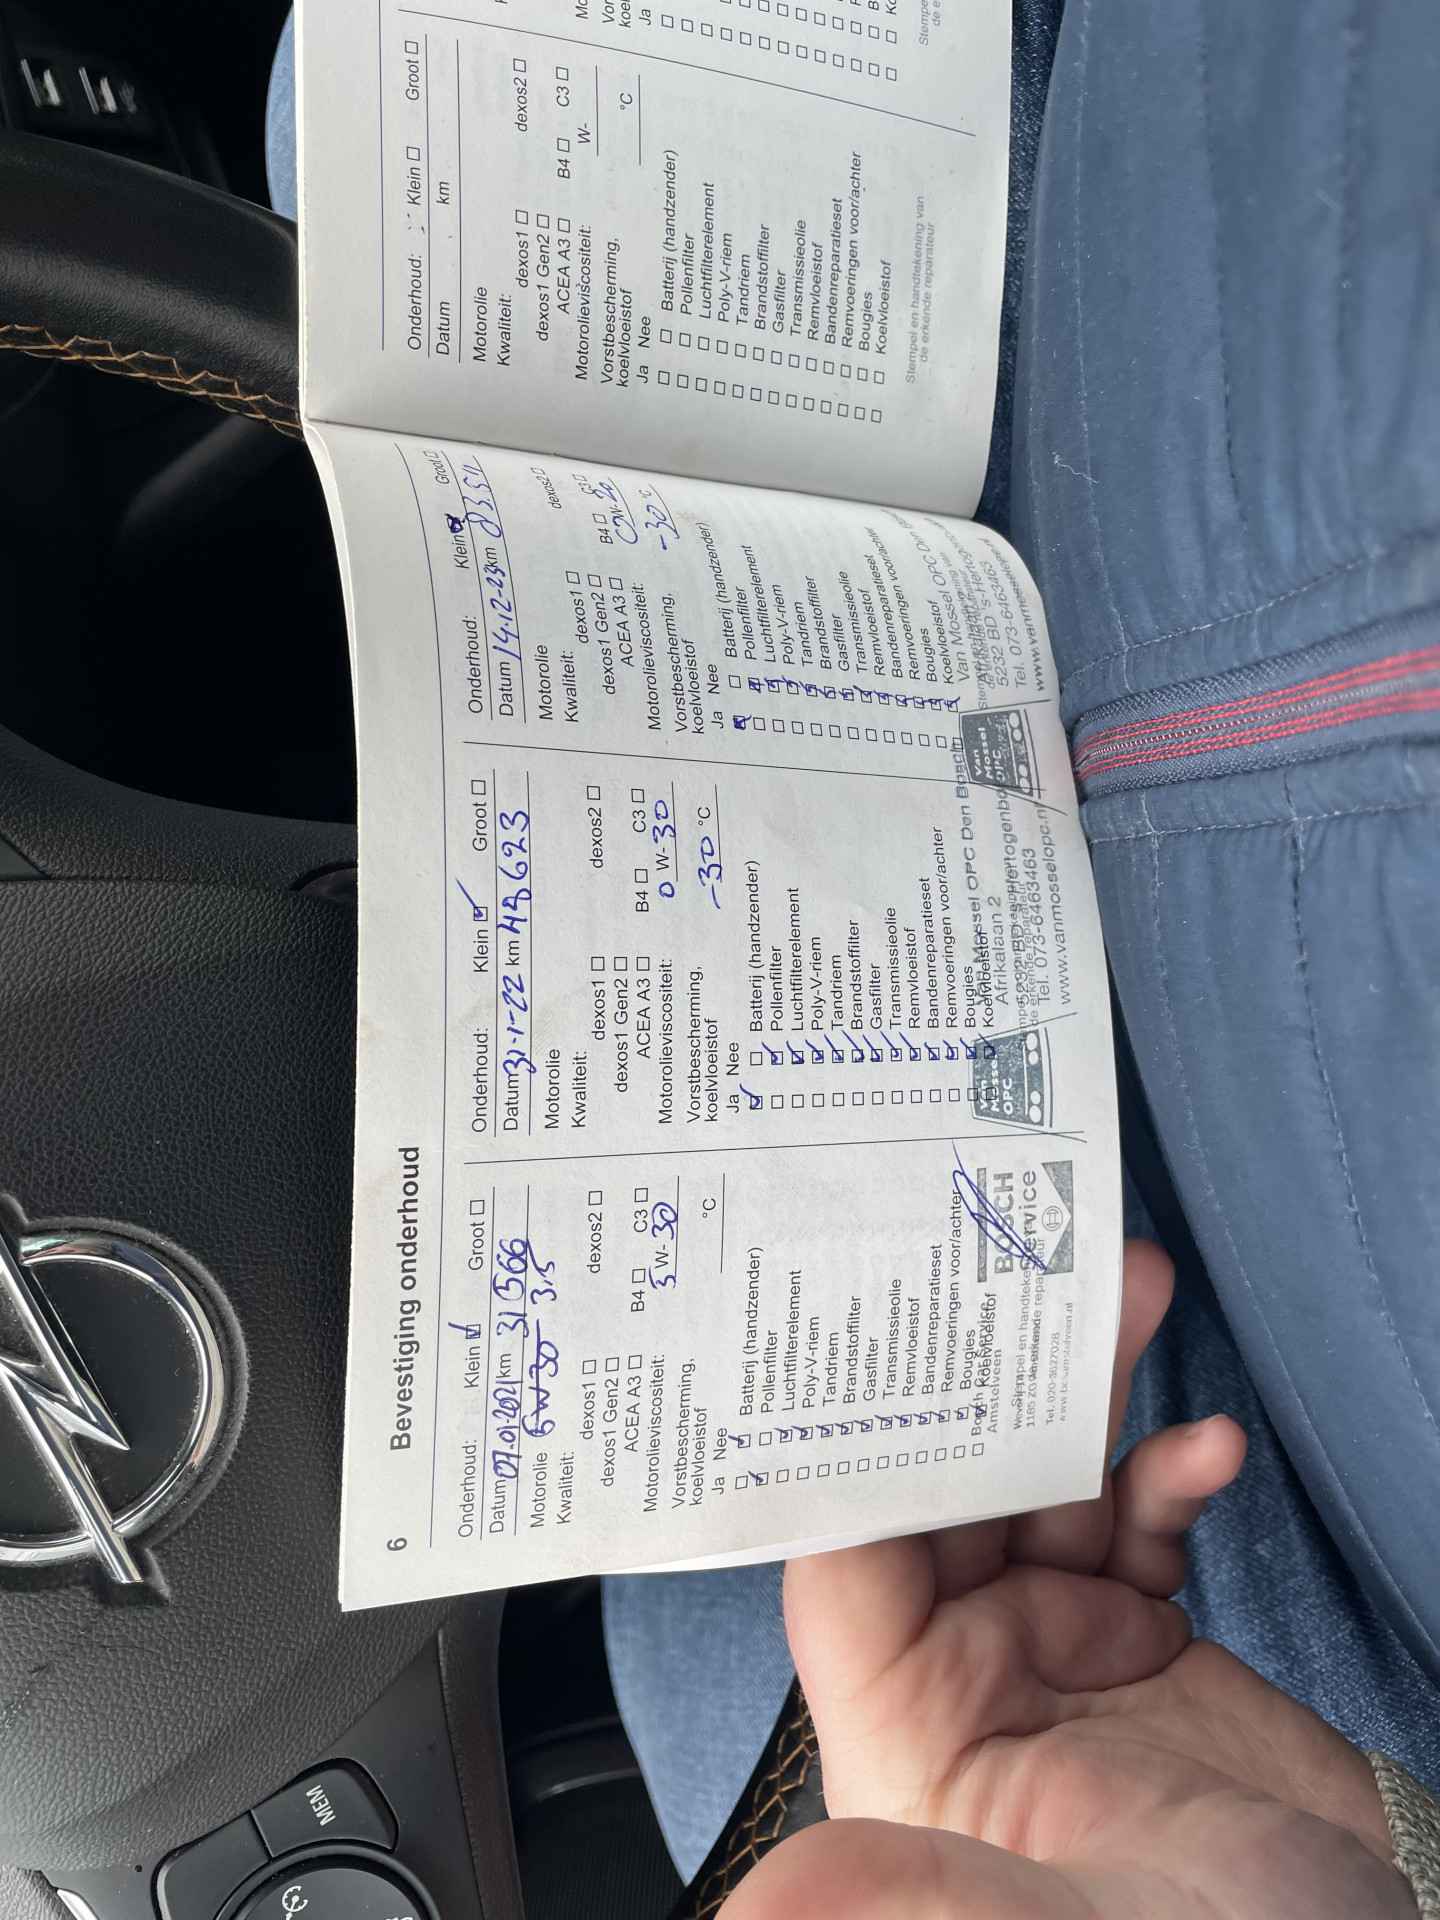 6 Bevestiging onderhoud
Onderhoud: Klein ☑ Groot ☐
Datum 07-01-2021 km 31566
Motorolie 5W30 3,5
Kwaliteit:
dexos1 ☐ dexos2 ☐
dexos1 Gen2 ☐
ACEA A3 ☐ B4 ☐ C3 ☐
Motorolieviscositeit: 5 W- 30
Vorstbescherming,
koelvloeistof °C
Ja Nee
☐ ☑ Batterij (handzender)
☑ ☐ Pollenfilter
☐ ☑ Luchtfilterelement
☐ ☑ Poly-V-riem
☐ ☑ Tandriem
☐ ☑ Brandstoffilter
☐ ☑ Gasfilter
☐ ☑ Transmissieolie
☐ ☑ Remvloeistof
☐ ☑ Bandenreparatieset
☐ ☑ Remvoeringen voor/achter
☐ ☑ Bougies
☐ ☑ Koelvloeistof
BOSCH
Service
Bosch Car Service
Amstelveen
Tel. 020-3627028
Onderhoud: Klein ☑ Groot ☐
Datum 31-1-22 km 48623
Motorolie
Kwaliteit:
dexos1 ☐ dexos2 ☐
dexos1 Gen2 ☐
ACEA A3 ☐ B4 ☐ C3 ☐
Motorolieviscositeit: 0 W- 30
Vorstbescherming,
koelvloeistof -30 °C
Ja Nee
☑ ☐ Batterij (handzender)
☐ ☑ Pollenfilter
☐ ☑ Luchtfilterelement
☐ ☑ Poly-V-riem
☐ ☑ Tandriem
☐ ☑ Brandstoffilter
☐ ☑ Gasfilter
☐ ☑ Transmissieolie
☐ ☑ Remvloeistof
☐ ☑ Bandenreparatieset
☐ ☑ Remvoeringen voor/achter
☐ ☑ Bougies
☐ ☑ Koelvloeistof
Van Mossel OPC
Van Mossel OPC Den Bosch
Afrikalaan 2
5232 BD 's-Hertogenbosch
Tel. 073-6463463
www.vanmosselopc.nl
Onderhoud: Klein ☑ Groot ☐
Datum 14-12-23 km
Motorolie
Kwaliteit:
dexos1 ☐ dexos2 ☐
dexos1 Gen2 ☐
ACEA A3 ☐ B4 ☐ C3 ☐
Motorolieviscositeit: W- 20
Vorstbescherming,
koelvloeistof -30 °C
Ja Nee
☑ ☐ Batterij (handzender)
☐ ☑ Pollenfilter
☐ ☑ Luchtfilterelement
☐ ☑ Poly-V-riem
☐ ☑ Tandriem
☐ ☑ Brandstoffilter
☐ ☑ Gasfilter
☐ ☑ Transmissieolie
☐ ☑ Remvloeistof
☐ ☑ Bandenreparatieset
☐ ☑ Remvoeringen voor/achter
☐ ☑ Bougies
☐ ☑ Koelvloeistof
Van Mossel OPC
Van Mossel OPC Den
5232 BD 's-Hertog
Tel. 073-6463463
Onderhoud: Klein ☐ Groot ☐
Datum km
Motorolie
Kwaliteit:
dexos1 ☐ dexos2 ☐
dexos1 Gen2 ☐
ACEA A3 ☐ B4 ☐ C3 ☐
Motorolieviscositeit: W-
Vorstbescherming,
koelvloeistof °C
Ja Nee
☐ ☐ Batterij (handzender)
☐ ☐ Pollenfilter
☐ ☐ Luchtfilterelement
☐ ☐ Poly-V-riem
☐ ☐ Tandriem
☐ ☐ Brandstoffilter
☐ ☐ Gasfilter
☐ ☐ Transmissieolie
☐ ☐ Remvloeistof
☐ ☐ Bandenreparatieset
☐ ☐ Remvoeringen voor/achter
☐ ☐ Bougies
☐ ☐ Koelvloeistof
Stempel en handtekening van
de erkende reparateur
Ja
MEM